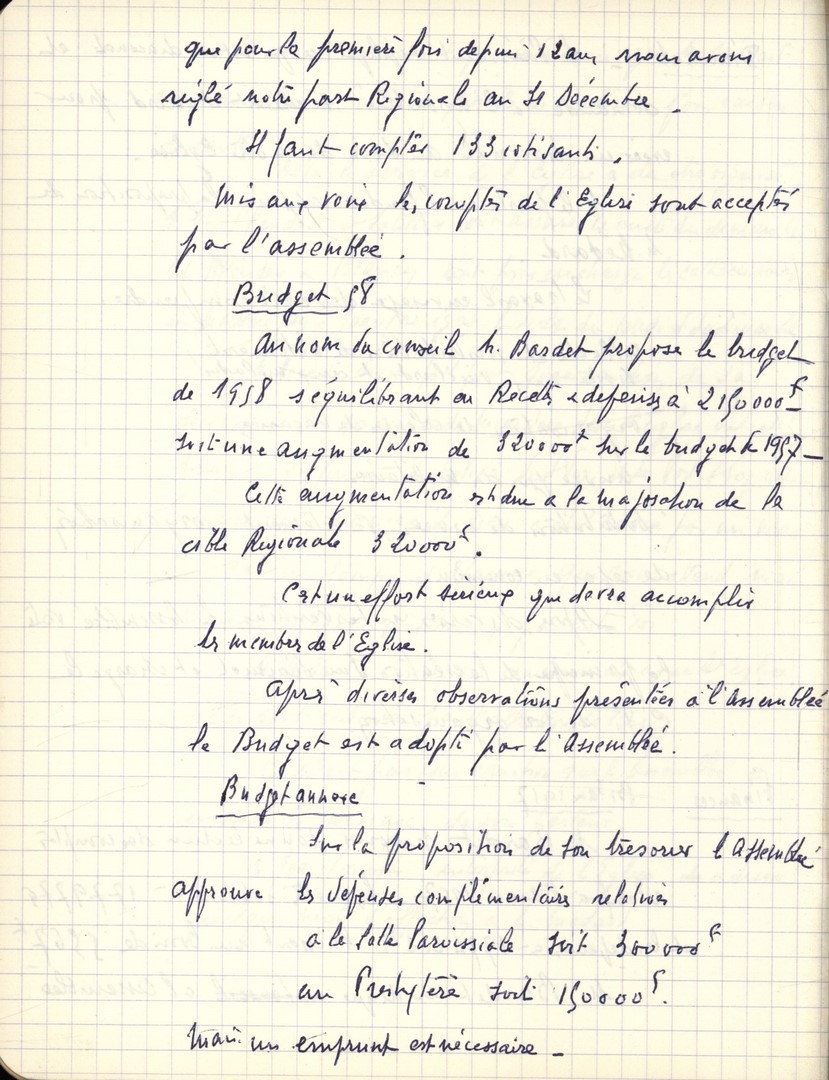 que pour la première fois depuis 12 ans nous avons
réglé notre part Régionale au 31 Décembre.
Il faut compter 133 cotisants.
Mis aux voix les comptes de l'Eglise sont acceptés
par l'assemblée.
Budget 58
Au nom du conseil M. Bardet propose le budget
de 1958 s'équilibrant en Recettes & dépenses à 2150000 F
soit une augmentation de 320000 F sur le budget de 1957 –
Cette augmentation est due a la majoration de la
cible Régionale 320000 F.
C'est un effort sérieux que devra accomplir
les membres de l'Eglise.
Après diverses observations présentées à l'Assemblée
le Budget est adopté par l'Assemblée.
Budget annexe
Sur la proposition de son trésorier l'Assemblée
approuve les dépenses complémentaires relatives
a la Salle Paroissiale soit 300000 F
au Presbytère soit 150000 F.
Mais un emprunt est nécessaire –